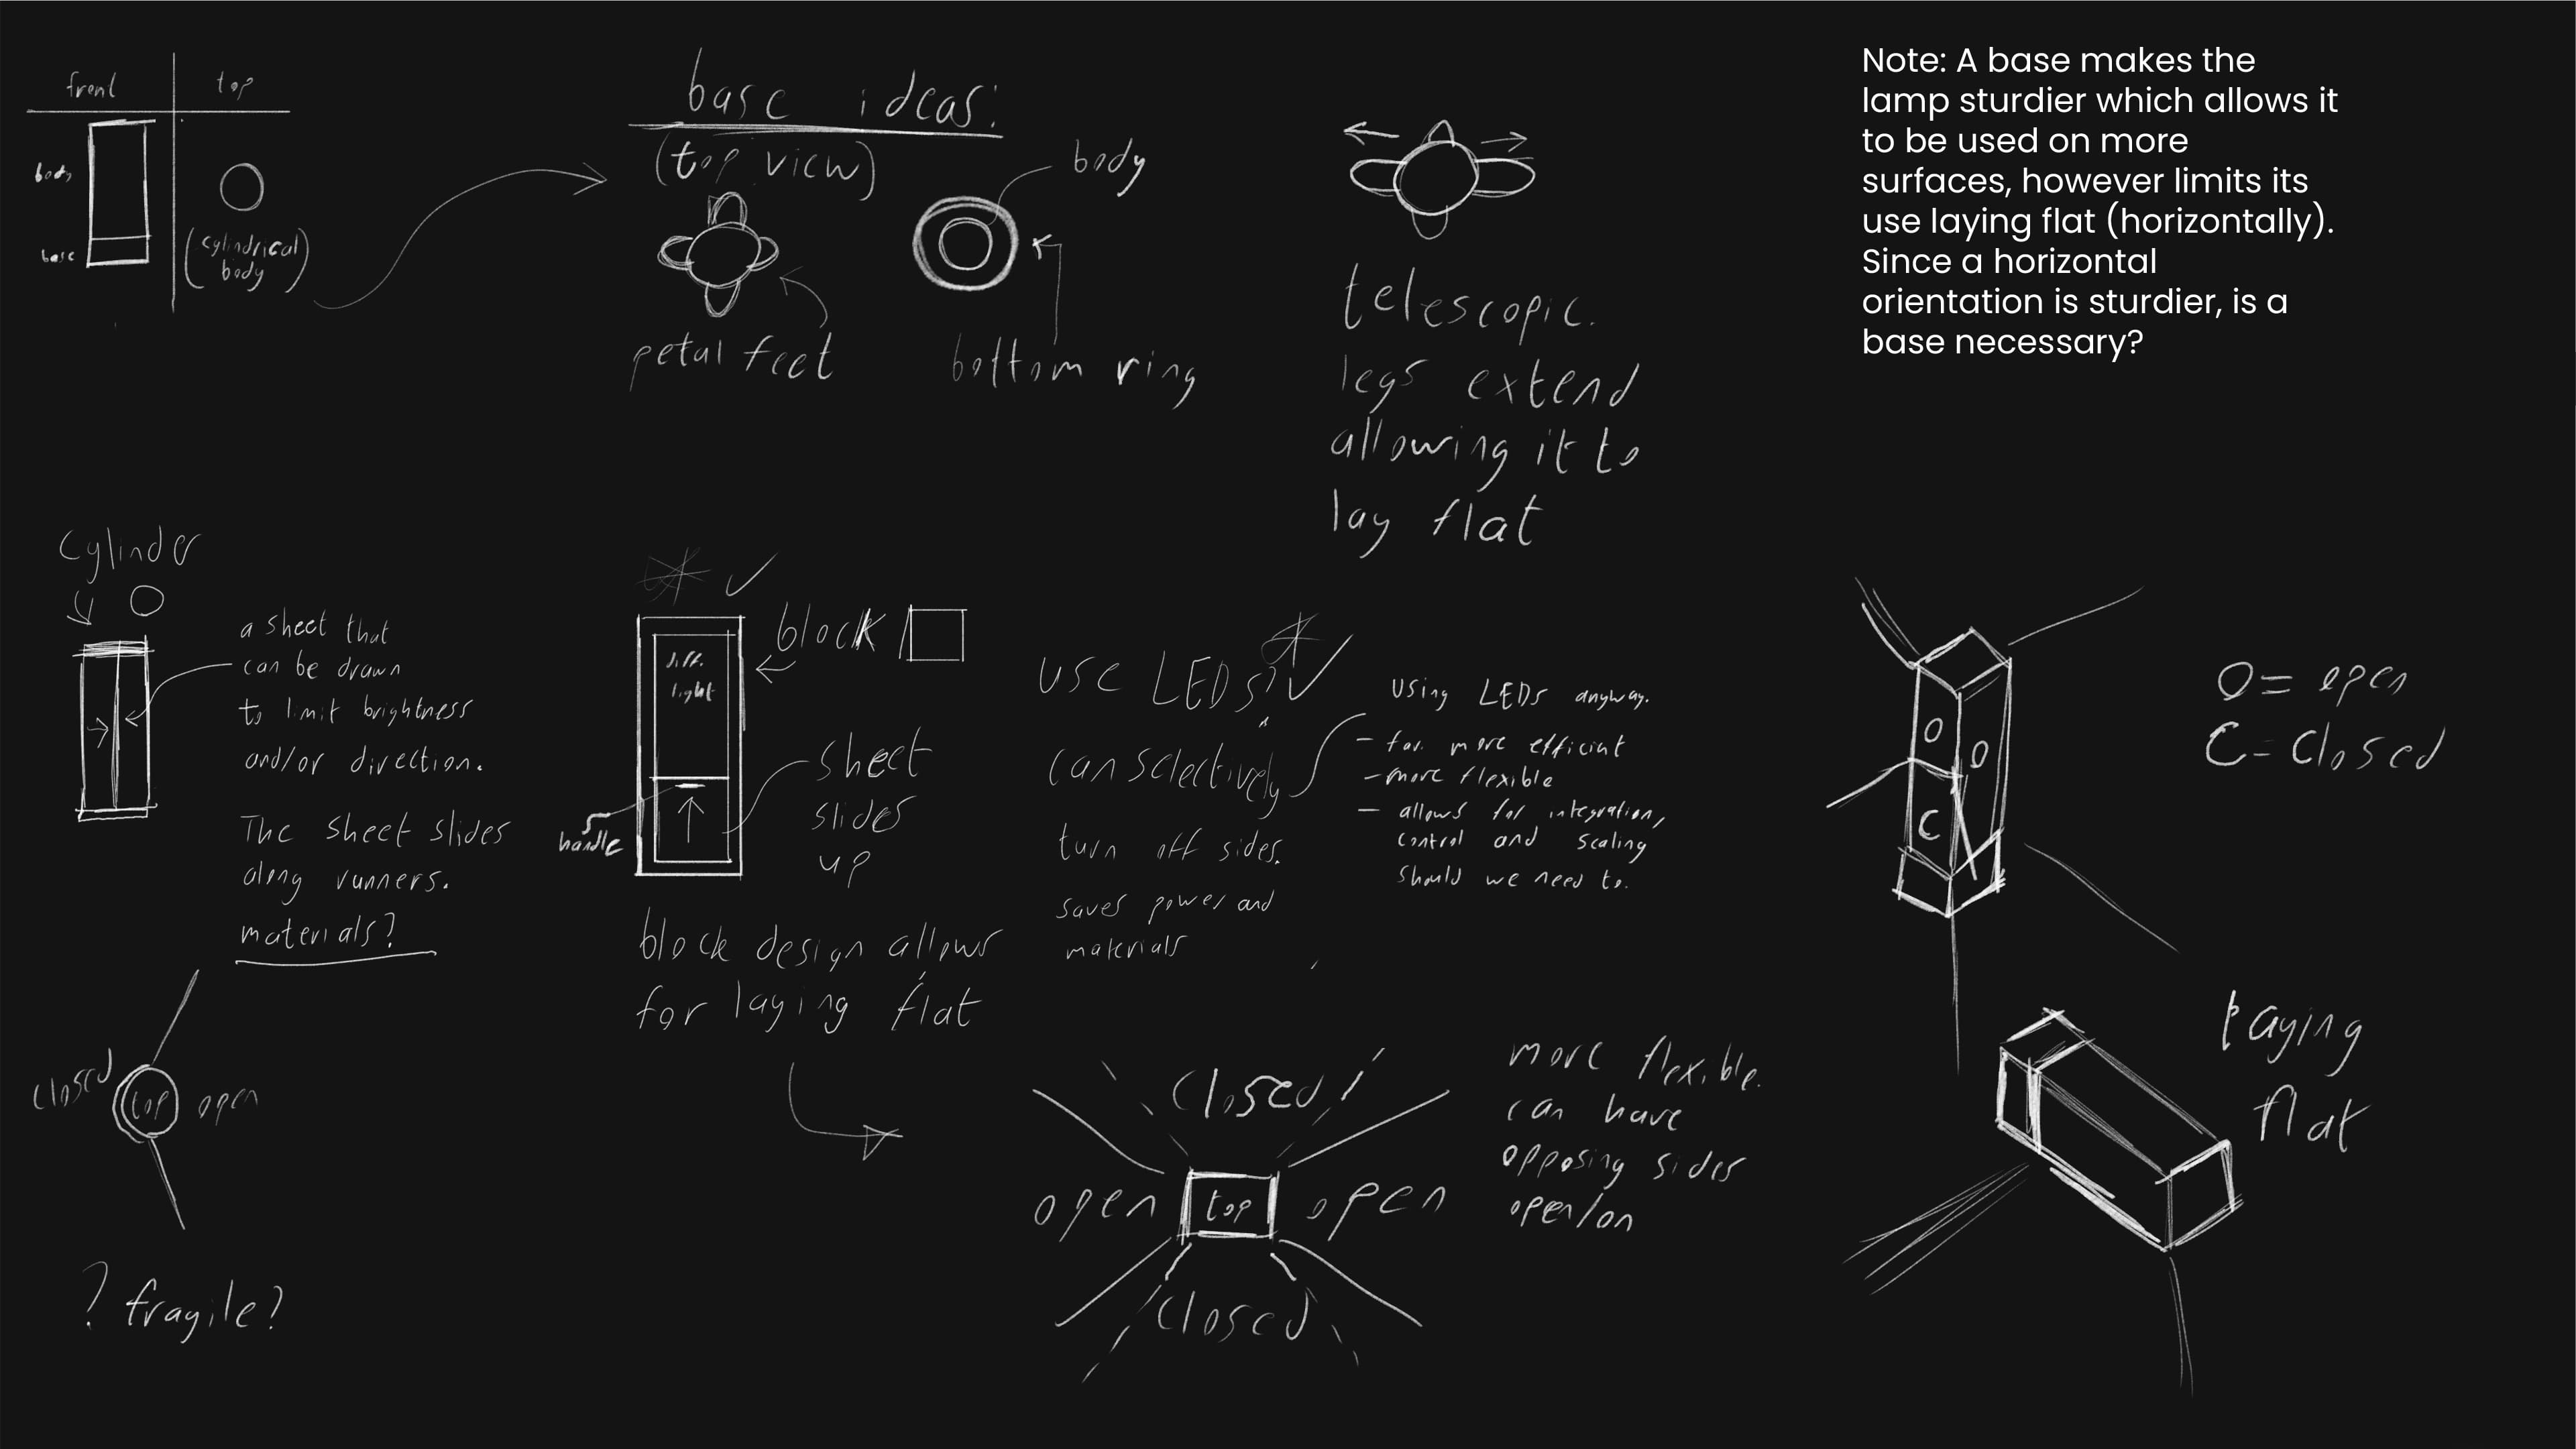 front
top
body
base
(cylindrical
body)
base ideas:
(top view)
body
petal feet
bottom ring
telescopic.
legs extend
allowing it to
lay flat
Note: A base makes the
lamp sturdier which allows it
to be used on more
surfaces, however limits its
use laying flat (horizontally).
Since a horizontal
orientation is sturdier, is a
base necessary?
Cylinder
a sheet that
can be drawn
to limit brightness
and/or direction.
The sheet slides
along runners.
materials?
closed
top
open
? fragile?
diff.
light
block
sheet
slides
up
handle
block design allows
for laying flat
use LEDs?
can selectively
turn off sides.
saves power and
materials
Using LEDs anyway.
- far more efficient
- more flexible
- allows for integration,
control and scaling
should we need to.
closed
open
top
open
closed
more flexible.
can have
opposing sides
open/on
O
O
C
O = open
C = Closed
Laying
flat